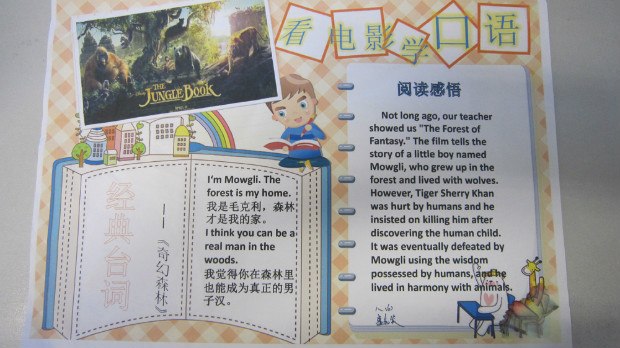 看电影学口语
THE
JUNGLE BOOK
阅读感悟
经典台词
——《奇幻森林》
I'm Mowgli. The
forest is my home.
我是毛克利，森林
才是我的家。
I think you can be a
real man in the
woods.
我觉得你在森林里
也能成为真正的男
子汉。
Not long ago, our teacher
showed us "The Forest of
Fantasy." The film tells the
story of a little boy named
Mowgli, who grew up in the
forest and lived with wolves.
However, Tiger Sherry Khan
was hurt by humans and he
insisted on killing him after
discovering the human child.
It was eventually defeated by
Mowgli using the wisdom
possessed by humans, and he
lived in harmony with animals.